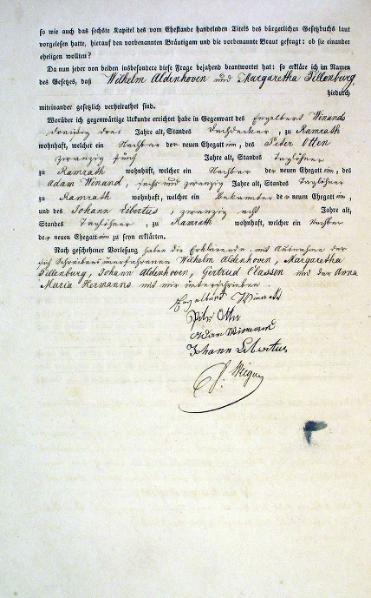 so wie auch das sechste Kapitel des vom Ehestande handelnden Titels des bürgerlichen Gesetzbuchs laut
vorgelesen hatte, hierauf den vorbenannten Bräutigam und die vorbenannte Braut gefragt: ob sie einander
ehelichen wollten?
Da nun jeder von beiden insbesondere diese Frage bejahend beantwortet hat: so erkläre ich im Namen
des Gesetzes, daß Wilhelm Aldenhoven und Margaretha Sillenburg
hiedurch
miteinander gesetzlich verheirathet sind.
Worüber ich gegenwärtige Urkunde errichtet habe in Gegenwart des Engelbert Winands
dreißig drei Jahre alt, Standes Dachdecker, zu Ramrath
wohnhaft, welcher ein Nachbar der neuen Ehegatten, des Peter Otten
zwanzig fünf Jahre alt, Standes Taglöhner
zu Ramrath wohnhaft, welcher ein Nachbar der neuen Ehegatten, des
Adam Winand, sechs und zwanzig Jahre alt, Standes Taglöhner
zu Ramrath wohnhaft, welcher ein Bekannter der neuen Ehegatten,
und des Johann Libertus, zwanzig acht Jahre alt,
Standes Taglöhner, zu Ramrath wohnhaft, welcher ein Nachbar
der neuen Ehegatten zu seyn erklärten.
Nach geschehener Vorlesung haben die Erklärenden mit Ausnahme der
sich Schreibens unerfahrenen Wilhelm Aldenhoven, Margaretha
Sillenburg, Johann Aldenhoven, Gertrud Classen und der Anna
Maria Hermanns mit mir unterschrieben.
Engelbert Winands
Peter Otten
Adam Winand
Johann Libertus